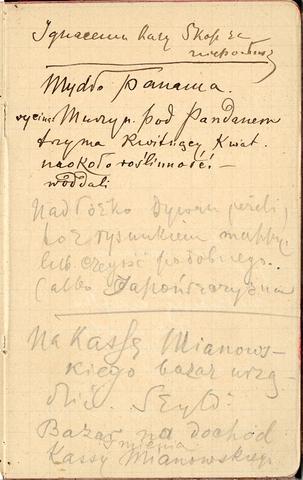 Ignacemu
Mydło Panama.
Murzyn pod Pandanem
trzyma Kwitnący Kwiat.
naokoło roślinność. —
w oddali
Nad łóżko Dywan perski,
bo z rysunkiem mappy.
lub czegoś podobnego.
(albo Japończyzna
Na Kassę Mianows-
kiego bazar urzą-
dzić. Szyld:
Bazar na dochód
Imienia
Kassy Mianowskiego